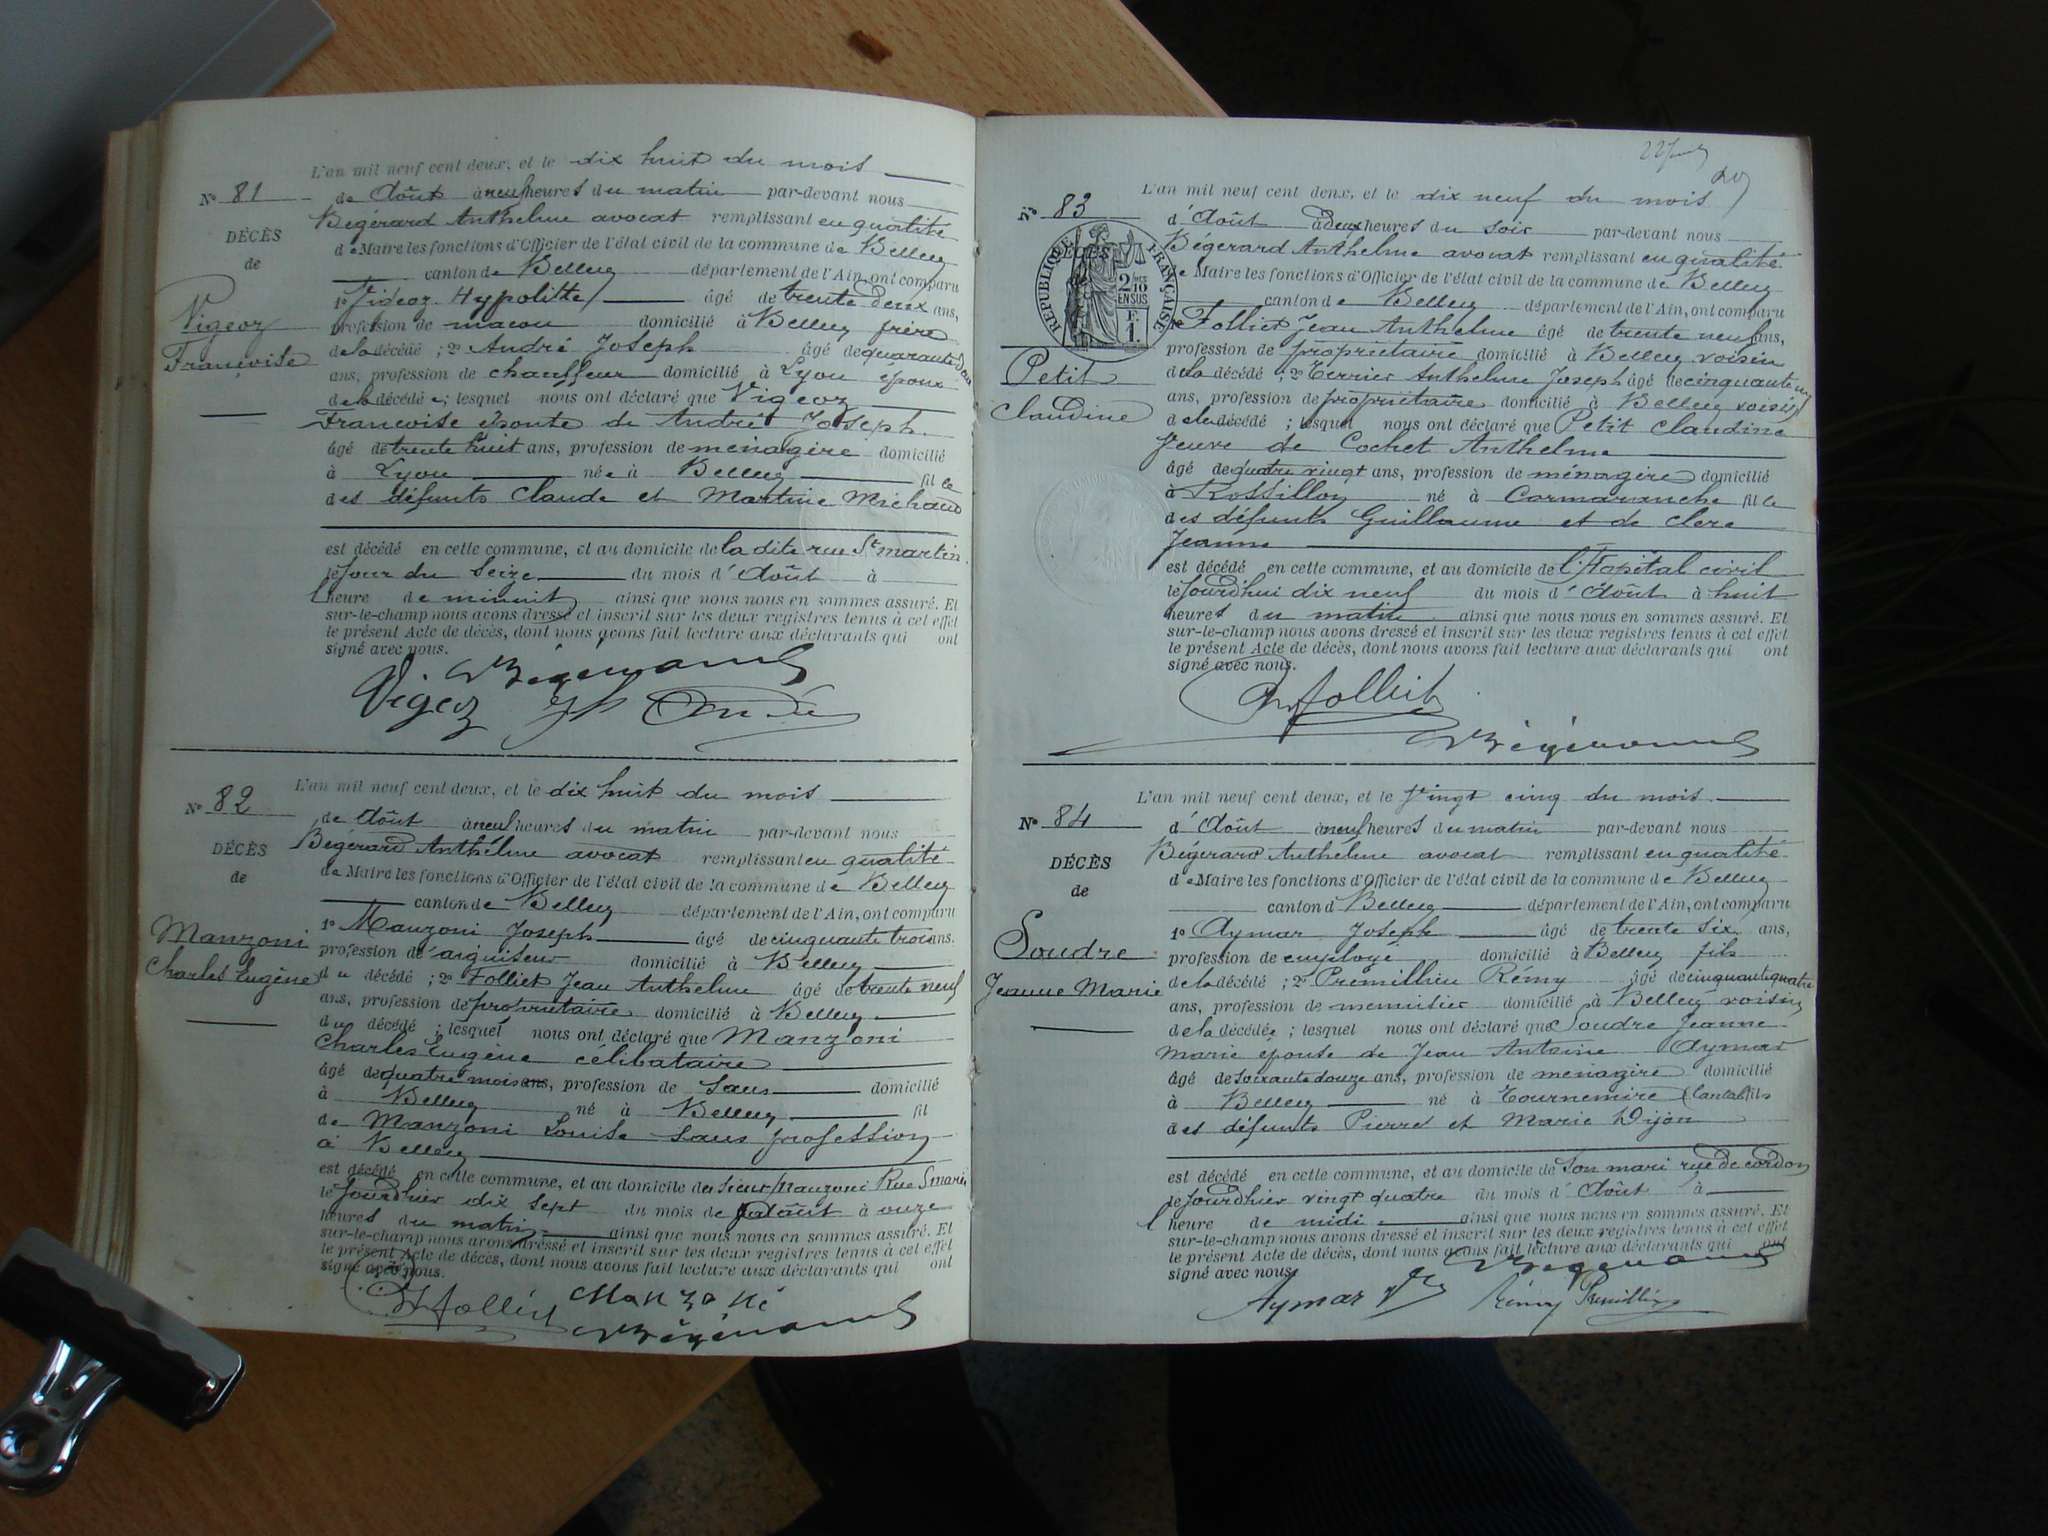 L'an mil neuf cent deux, et le dix huit du mois
N° 81 de Août à neuf heures du matin par-devant nous
Bégérard Anthelme avocat remplissant en qualité
DÉCÈS
de Maire les fonctions d'Officier de l'état civil de la commune de Belley
de
canton de Belley département de l'Ain, ont comparu
Vigeoz
1° Vigeoz Hypolitte âgé de trente deux ans,
profession de macon domicilié à Belley frère
Françoise
de la décédé ; 2° André Joseph âgé de quarante deux
ans, profession de chauffeur domicilié à Lyon époux
de la décédée ; lesquel nous ont déclaré que Vigeoz
Francoise épouse de André Joseph
âgé de trente huit ans, profession de menagère domicilié
à Lyon née à Belley fille
des défunts Claude et Martine Michaud
est décédé en cette commune, et au domicile de la dite rue St martin
le jour du seize du mois d'Août à
l'heure de minuit ainsi que nous nous en sommes assuré. Et
sur-le-champ nous avons dressé et inscrit sur les deux registres tenus à cet effet
le présent Acte de décès, dont nous avons fait lecture aux déclarants qui ont
signé avec nous.
Vigeoz Jh André
L'an mil neuf cent deux, et le dix huit du mois
N° 82 de Août à neuf heures du matin par-devant nous
Bégérard Anthélme avocat remplissant en qualité
DÉCÈS
de Maire les fonctions d'Officier de l'état civil de la commune de Belley
de
canton de Belley département de l'Ain, ont comparu
Manzoni
1° Manzoni Joseph âgé de cinquante trois ans.
profession d'aiguiseur domicilié à Belley
Charles Eugène
du décédé ; 2° Folliet Jean Anthelme âgé de trente neuf
ans, profession de propriétaire domicilié à Belley
du décédé ; lesquel nous ont déclaré que Manzoni
Charles Eugène célibataire
âgé de quatre mois ans, profession de Sans domicilié
à Belley né à Belley fil
de Manzoni Louise sans profession
à Belley
est décédé en cette commune, et au domicile du sieur Manzoni Rue
le jourdhier dix sept du mois de août à onze
heures du matin ainsi que nous nous en sommes assuré. Et
sur-le-champ nous avons dressé et inscrit sur les deux registres tenus à cet effet
le présent Acte de décès, dont nous avons fait lecture aux déclarants qui ont
signé avec nous.
L'an mil neuf cent deux, et le dix neuf du mois
N° 83 d'Août à deux heures du soir par-devant nous
Bégerard Anthelme avocat remplissant en qualité
DÉCÈS
RÉPUBLIQUE FRANÇAISE
2/10 EN SUS
F. 1.
de Maire les fonctions d'Officier de l'état civil de la commune de Belley
canton de Belley département de l'Ain, ont comparu
Folliet Jean Anthelme âgé de trente neuf ans,
profession de propriétaire domicilié à Belley voisin
Petit
de la décédé ; 2° Terrier Anthelme Joseph âgé de cinquante un
ans, profession de propriétaire domicilié à Belley voisin
Claudine
de la décédé ; lesquel nous ont déclaré que Petit Claudine
Veuve de Cochet Anthelme
âgé de quatre vingt ans, profession de ménagère domicilié
à Rossillon né à Cormaranche fille
des défunts Guillaume et de Clerc
Jeanne
est décédé en cette commune, et au domicile de l'Hopital civil
le jourdhui dix neuf du mois d'Août à huit
heures du matin ainsi que nous nous en sommes assuré. Et
sur-le-champ nous avons dressé et inscrit sur les deux registres tenus à cet effet
le présent Acte de décès, dont nous avons fait lecture aux déclarants qui ont
signé avec nous.
L'an mil neuf cent deux, et le Vingt cinq du mois
N° 84 d'Août à neuf heures du matin par-devant nous
Bégerard Anthelme avocat remplissant en qualité
DÉCÈS
de Maire les fonctions d'Officier de l'état civil de la commune de Belley
de
canton d Belley département de l'Ain, ont comparu
Soudre
1° Aymar Joseph âgé de trente six ans,
profession de employé domicilié à Belley fils
Jeanne Marie
de la décédé ; 2° Premillieu Rémy âgé de cinquante quatre
ans, profession de menuisier domicilié à Belley voisin
de la décédée ; lesquel nous ont déclaré que Soudre Jeanne
Marie épouse de Jean Antoine Aymar
âgé de soixante douze ans, profession de menagère domicilié
à Belley né à Tournemire (Cantal) fils
des défunts Pierre et Marie Dijon
est décédé en cette commune, et au domicile de son mari rue de cordon
le jourdhier vingt quatre du mois d'Août à
l'heure de midi ainsi que nous nous en sommes assuré. Et
sur-le-champ nous avons dressé et inscrit sur les deux registres tenus à cet effet
le présent Acte de décès, dont nous avons fait lecture aux déclarants qui ont
signé avec nous.
Aymar Rémy